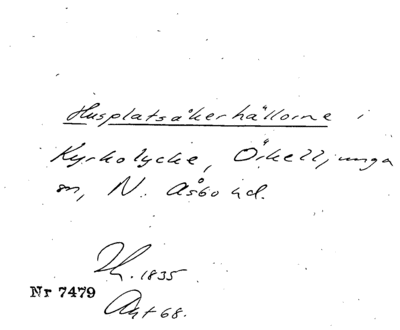 Husplatsåkerhällorne i
Kyrkolycke, Örkelljunga
sn, N. Åsbo hd.
Lh. 1835.
Nr 7479
Akt 68.